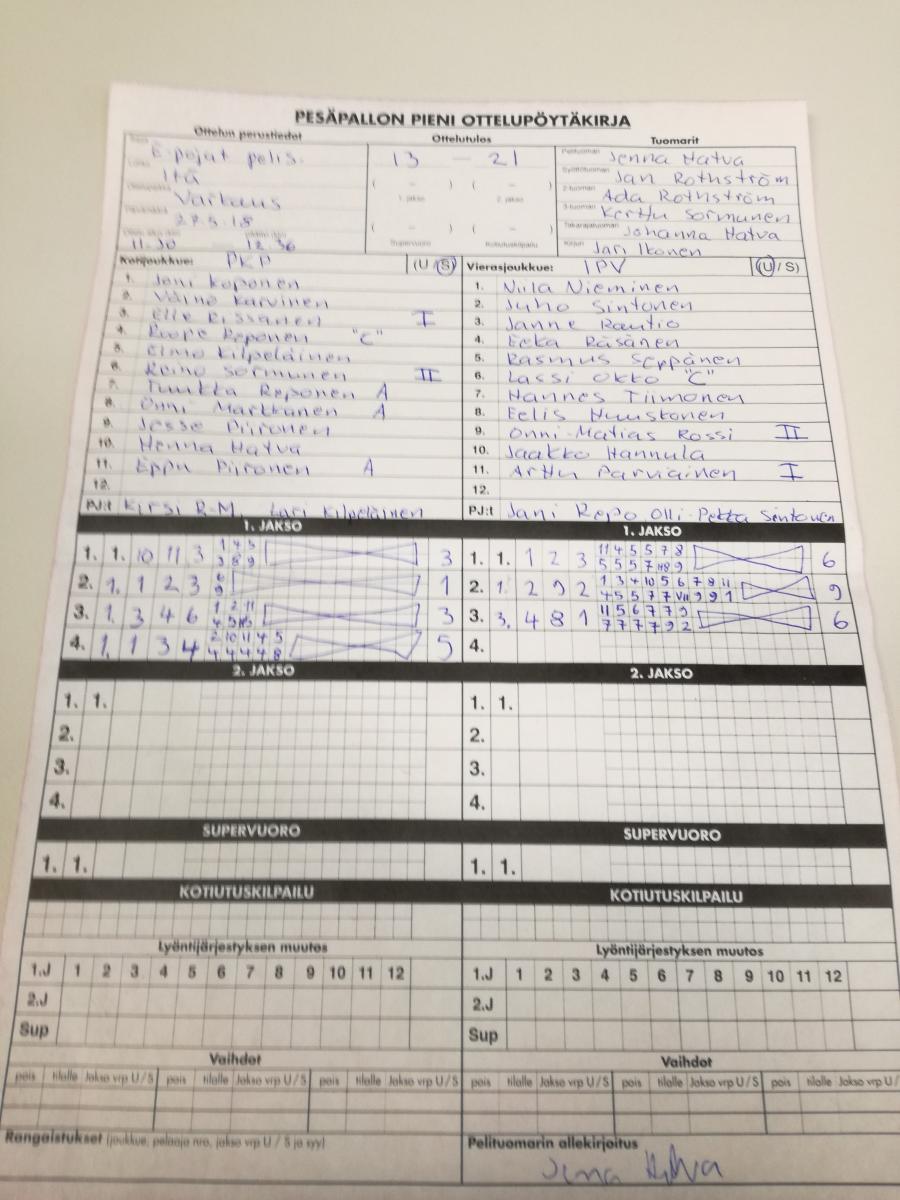 PESÄPALLON PIENI OTTELUPÖYTÄKIRJA
Ottelun perustiedot Ottelutulos Tuomarit
E-pojat pelis.
Itä
Varkaus
27.5.18
11.30 12.36
13 – 21
( – ) ( – )
1. jakso 2. jakso
( – ) ( – )
Supervuoro Kotiutuskilpailu
Pelituomari Jenna Hatva
Syöttötuomari Jan Rothström
2-tuomari Ada Rothström
3-tuomari Kerttu Sormunen
Takarajatuomari Johanna Hatva
Kirjuri Jari Ikonen
Kotijoukkue: PKP (U/S)
1. Joni Koponen
2. Väinö Karvinen
3. Elle Rissanen I
4. Roope Reponen "C"
5. Elmo Kilpeläinen
6. Reino Sormunen II
7. Tuukka Reponen A
8. Onni Markkanen A
9. Jesse Piironen
10. Henna Hatva
11. Eppu Piironen A
12.
PJ:t Kirsi R-M, Lari Kilpeläinen
Vierasjoukkue: IPV (U/S)
1. Niila Nieminen
2. Juho Sintonen
3. Janne Rautio
4. Eeka Räsänen
5. Rasmus Seppänen
6. Lassi Okko "C"
7. Hannes Tiimonen
8. Eelis Huuskonen
9. Onni-Matias Rossi II
10. Jaakko Hannula
11. Arttu Parviainen I
12.
PJ:t Jani Repo Olli-Pekka Sintonen
1. JAKSO
1. 1. 10 11 3 1 4 5 3
3 8 9
2. 1. 1 2 3 6 1
9
3. 1. 3 4 6 1 2 11 3
4. 1. 1 3 4 2 10 11 4 5 5
4 4 4 4 8
1. JAKSO
1. 1. 1 2 3 11 4 5 5 7 8 6
5 5 5 7 9
2. 1. 2 9 2 1 3 4 10 5 6 7 8 11 9
4 5 5 7 7 9 9 1
3. 3. 4 8 1 11 5 6 7 7 9 6
7 7 7 7 9 2
4.
2. JAKSO
1. 1.
2.
3.
4.
2. JAKSO
1. 1.
2.
3.
4.
SUPERVUORO
1. 1.
SUPERVUORO
1. 1.
KOTIUTUSKILPAILU
KOTIUTUSKILPAILU
Lyöntijärjestyksen muutos
1.J 1 2 3 4 5 6 7 8 9 10 11 12
2.J
Sup
Lyöntijärjestyksen muutos
1.J 1 2 3 4 5 6 7 8 9 10 11 12
2.J
Sup
Vaihdot
pois tilalle Jakso vrp U/S pois tilalle Jakso vrp U/S pois tilalle Jakso vrp U/S
Vaihdot
pois tilalle Jakso vrp U/S pois tilalle Jakso vrp U/S pois tilalle Jakso vrp U/S
Rangaistukset (joukkue, pelaaja nro, jakso vrp U / S ja syy)
Pelituomarin allekirjoitus
Jenna Hatva